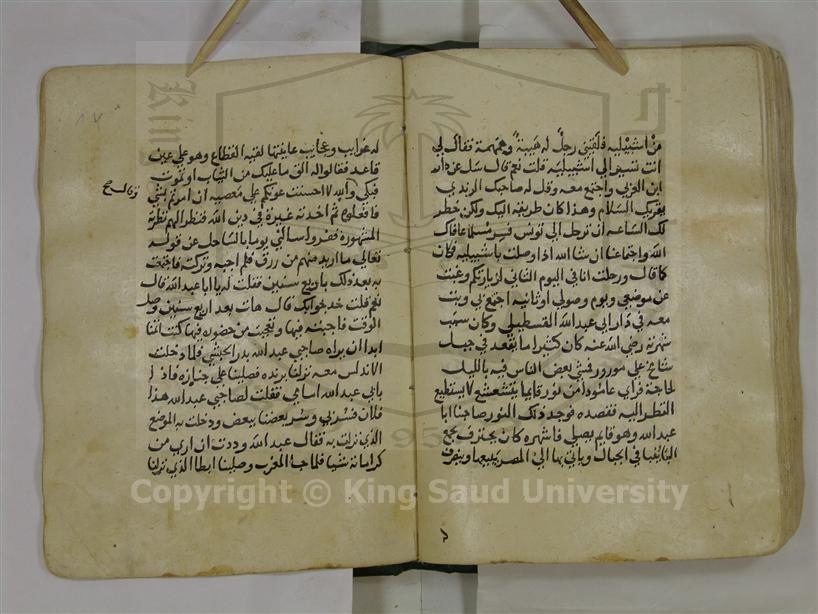 من اشبيلية فلقيني رجل له هيبة وهمهمة فقال لي
انت تسير الى اشبيلية قلت نعم قال سل عن دار
ابن العربي واجتمع معه وقل له صاحبك الرندي
يقريك السلام وهذا كان طريقه اليك ولكن خطر
لك الساعه ان ترحل الى تونس فسر مسلما عافاك
الله واجتماعنا ان شا الله اذا وصلت باشبيلية فكان
كما قال ورحلت انا في اليوم الثاني لزيارتكم وغبت
عن موضعي ويوم وصولي او ثانيه اجتمع بي وبت
معه في دار ابي عبد الله القسطيلي وكان سبب
شهرته رضي الله عنه كان كثيرا ما يقعد في جبل
شامخ على مورور فمشى بعض الناس فيه بالليل
لحاجة فراي عامودا من نور قايما يتشعشع لا يستطيع
النظر اليه فقصده فوجد ذلك النور صاحبنا ابا
عبد الله وهو قايم يصلي فاشهره كان يحترف بجمع
البابونج في الجبال وياتي بها الى المصر يبيعها
له غرايب وعجايب عاينتها لقيه القطاع وهو على عين
قاعد فقالوا له الق ما عليك من الثياب او تموت
فبكى وقال والله لا احسنت عونكم على معصيه ان امرتم بشي
فافعلوه ثم اخذته غيرة في دين الله فنظر اليهم نظرته
المشهورة ففروا سالني يوما بالساحل عن قوله
تعالى ما اريد منهم من رزق فلم اجبه وتركته فاجتمعت
به بعد ذلك باربع سنين فقلت له يا ابا عبد الله قال
نعم قلت خذ جوابك قال هات بعد اربع سنين وصل
الوقت فاجبته فيها وتعجبت من حضوره فيها كنت اتمنا
ابدا ان يراه صاحبي عبد الله بدر الحبشي فلما دخلت
الاندلس معه نزلنا برنده فصلينا على جنازه فاذا
بابي عبد الله امامي فقلت لصاحبي عبد الله هذا
فلان فسر بي وسر بعضنا ببعض ودخلت به الموضع
الذي نزلت به فقال عبد الله وددت ان ارى من
كراماته شيا فلما جا المغرب وصلينا ابطا الذي نزلنا
وقال صح
Copyright © King Saud University